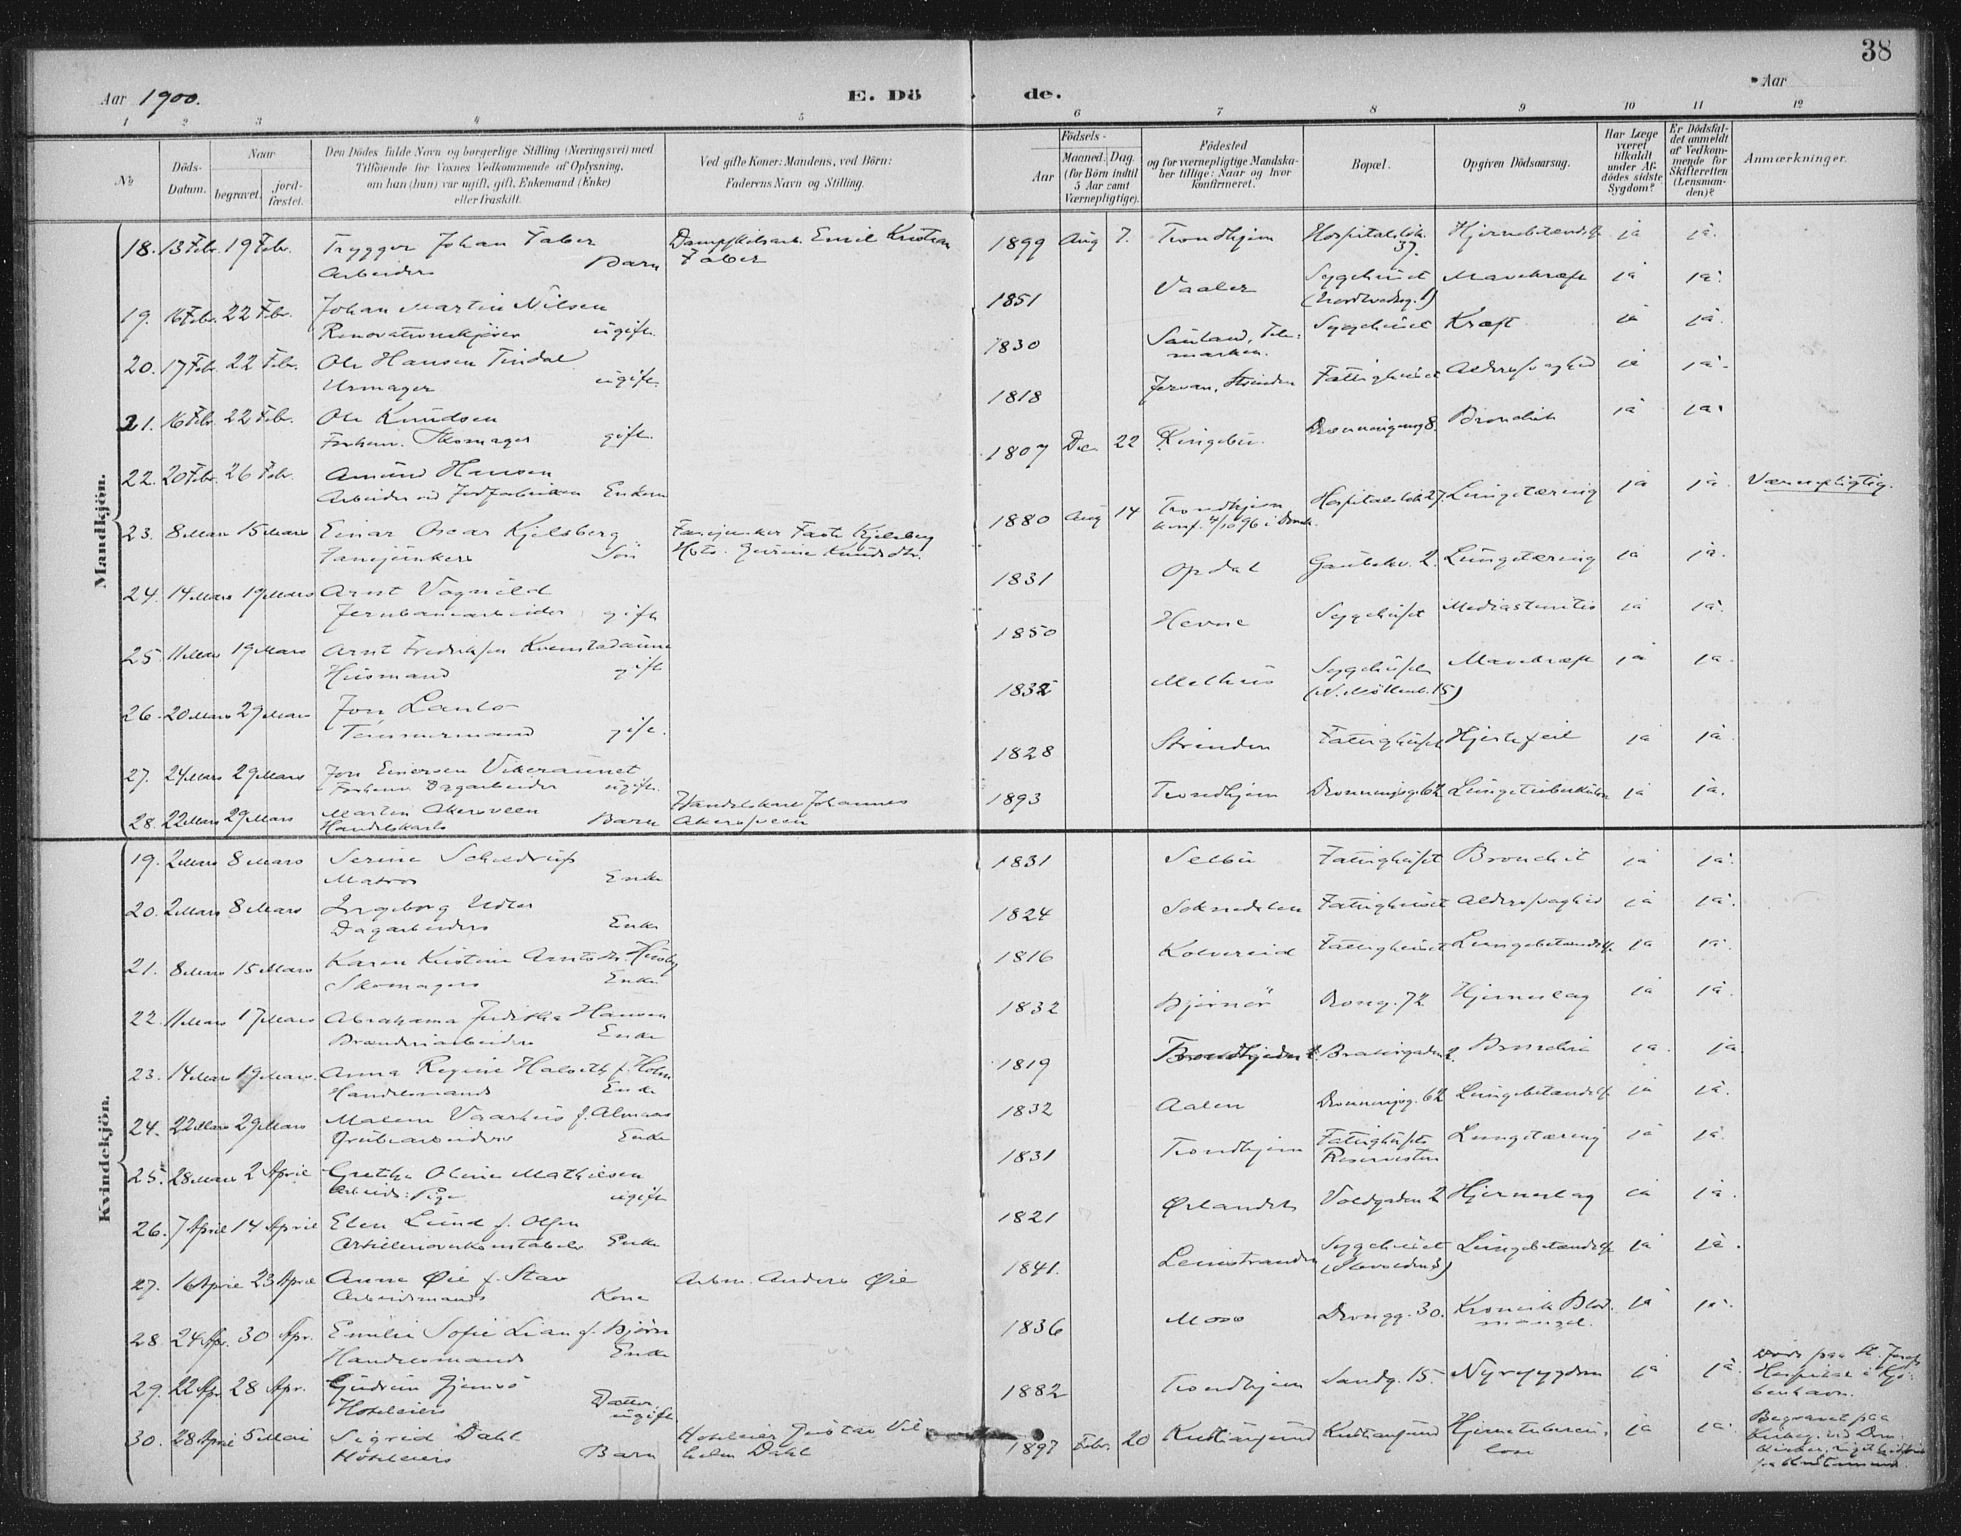 38
Aar 1900.
E. Dö de.
Aar
1 2 3 4 5 6 7 8 9 10 11 12
№
Döds-Datum.
Naar
begravet.
jord-fæstet.
Den Dödes fulde Navn og borgerlige Stilling (Næringsvei) med
Tilföiende for Voxnes Vedkommende af Oplysning,
om han (hun) var ugift, gift, Enkemand (Enke)
eller fraskilt.
Ved gifte Koner: Mandens, ved Börn:
Faderens Navn og Stilling.
Födsels-
Aar
Maaned. Dag.
(for Börn indtil
5 Aar samt
Værnepligtige).
Födested
og for værnepligtige Mandska-
ber tillige: Naar og hvor
konfirmeret.
Bopæl.
Opgiven Dödsaarsag.
Har Læge
været
tilkaldt
under Af-
dödes sidste
Sygdom?
Er Dödsfal-
det anmeldt
af Vedkom-
mende for
Skifteretten
(Lensman-
den)?
Anmærkninger.
Mandkjön.
18. 13 Febr. 19 Febr. Trygger Johan Faber Dampskibsarb. Emil Kristian 1899 Aug 7. Trondhjem Hospitalslök. Hjernebetændelse ja ja.
Arbeiders Barn Faber 37.
19. 16 Febr. 22 Febr. Johan Martin Nilsen 1851 Vaaler Sygehuset Mavekræft ja ja.
Renovationskjörer ugift.
20. 17 Febr. 22 Febr. Ole Hansen Tindal 1830 Sauland, Tele- Sygehuset Kræft ja ja.
Urmager ugift. marken.
21. 16 Febr. 22 Febr. Ole Knudsen 1818 Jervan, Strinden Fattighuset Alderssvaghed ja ja.
Forhenv. Skomager gift.
22. 20 Febr. 26 Febr. Amund Hansen 1807 Dec 22 Ringebu. Dronningensg 8. Bronchit ja ja.
Arbeider ved Enkem
23. 8 Mars 15 Mars Einar Oscar Kjelsberg Fanejunker Kjelsberg 1880 Aug 14 Trondhjem Hospitalslök 27. Lungetæring ja ja. Værnepligtig.
Fanejunkers Sön Knudsdtr. konf. 4/10 96 i Domk.
24. 14 Mars 19 Mars Arnt Vognild 1831 Opdal Gautekv. 2. Lungetæring ja ja.
Jernbanearbeider gift
25. 11 Mars 19 Mars Arnt Fredriksen 1850 Hevne Sygehuset Mediastinitis ja ja.
Husmand gift
26. 20 Mars 29 Mars Jon Lanlo 1832 Melhus Sygehuset Mavekræft ja ja.
Tömmermand gift. (N. Möllenb. 15)
27. 24 Mars 29 Mars Jon Einersen Vikeraunet 1828 Strinden Fattighuset Hjertefeil ja ja.
Forhenv. Dagarbeider ugift.
28. 22 Mars 29 Mars Martin Akersveen Handelskarl Johannes 1893 Trondhjem Dronningsg. 62 Lungetuberkulose ja ja.
Handelskarls Barn Akersveen
Kvindekjön.
19. 2 Mars 8 Mars Serine Scheldrup 1831 Selbu Fattighuset Bronchit ja ja.
Matros Enke
20. 2 Mars 8 Mars Ingeborg Udler 1824 Soknedalen Fattighuset Alderssvaghed ja ja.
Dagarbeiders Enke
21. 8 Mars 15 Mars Karen Kristine Arntsdtr. Husby 1816 Kolvereid Fattighuset Lungebetændelse ja ja.
Skomagers Enke
22. 11 Mars 17 Mars Abrahama Juditha Hansen 1832 Björnör Drong. 72 Hjerneslag ja ja.
Brænderiarbeiders Enke
23. 14 Mars 19 Mars. Anna Regine Halseth f. Holm 1819 Trondhjem Brattörgaden 2. Bronchit ja. ja.
Handelsmands Enke
24. 22 Mars 29 Mars Malene Vaarhus f. Almaas 1832 Aalen Dronningsg. 62 Lungebetændelse ja ja.
Grubearbeiders Enke
25. 28 Mars 2 April Grethe Oline Mathiesen 1831 Trondhjem Fattighusets Lungetæring ja ja.
Arbeids: Pige ugift
26. 7 April 14 April Elen Lund f. Olsen 1821 Örlandet Voldgaden 2 Hjerneslag ja ja.
Artilleriovekonstabels Enke
27. 16 April 23 April Anne Øie f. Stav Arbm. Anders Øie 1841. Leinstranden Sygehuset Lungebetændelse ja ja.
Arbeidsmands Kone
28. 24 Apr. 30 Apr. Emilie Sofie Lian f. Björn 1836 Moss Drongg. 30. Kronisk Blod- ja ja.
Handelsmands Enke mangel.
29. 22 Apr 28 Apr. Gudrun Gjemsö 1882 Trondhjem Sandg. 15. Nyresygdom ja ja. Döde paa St. Josefs
Hoteleiers Datter, ugift. Hospital i Kjö-
benhavn.
30. 28 April 5 Mai Sigrid Dahl Hoteleier Gustav Vil- 1897 Febr. 20 Kristiansund Kristiansund Hjernetuberku- ja ja. Begravet paa
Hoteleiers Barn helm Dahl lose ved Dom-